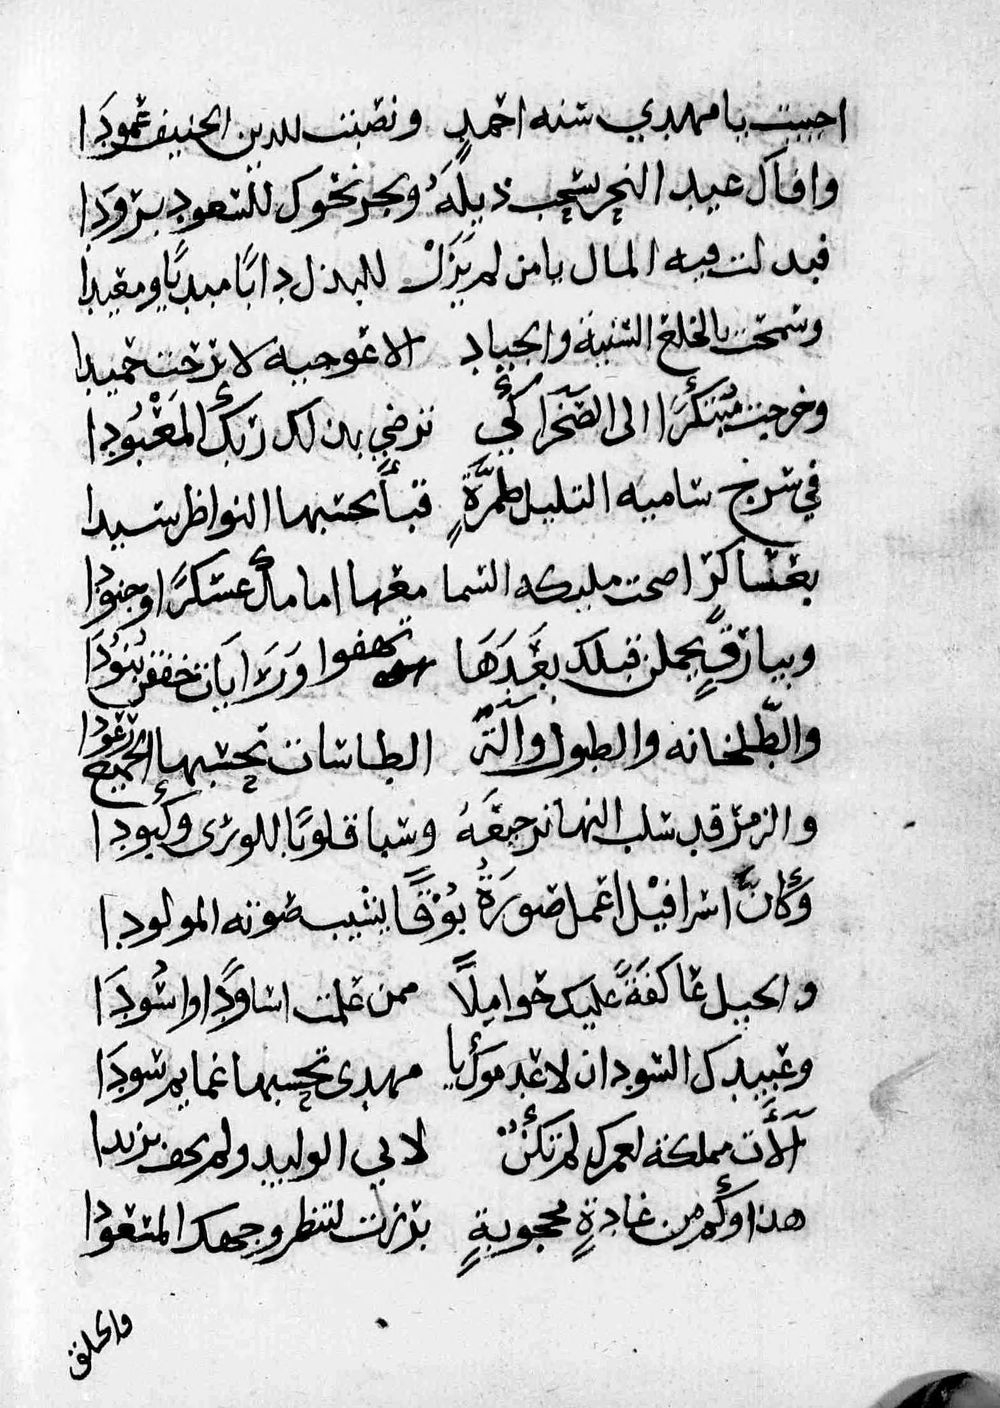 احييت يا مهدي سنه احمد ونصبت للدين الحنيف عمودا
وافاك عيد النحر يسحب ذيله ويجر نحوك للسعود برودا
فبدلت فيه المال يا من لم يزل للبذل دابًا مبديًا ومعيدا
وسمحت بالخلع السنية والجياد الاعوجيه لا برحت حميدا
وخرجت مبتكرًا الى الصحرا كي ترضي بذلك ربك المعبودا
في سرج سامية التليل طمرةٍ قبأ تحسبها النواظر سيدا
بعساكر اضحت مليكه السما معها امامك عسكرًا وجنودا
وبيارقٍ يحملن قبلك بعدها تهفوا ورايات خفقن بنودا
والطبلخانه والطبول وآلة الطاسات تحسبها الجميع رعودا
والزمر قد سلب النها ترجيعه وسبا قلوبًا للورى وكبودا
وكأن اسرافيل اعمل صورة بوقًا يشيب صوته المولودا
والخيل عاكفةً عليك حواملًا ممن علمت اساودًا واسودا
وعبيدك السودان لا عبد موك يا مهدى تحسبها غمايم سودا
آلأت مملكة لعمرك لم تكن لابي الوليد ولم يحف يزيدا
هذا وكم من غادةٍ محجوبةٍ برزت لتنظر وجهك المسعودا
والخلق